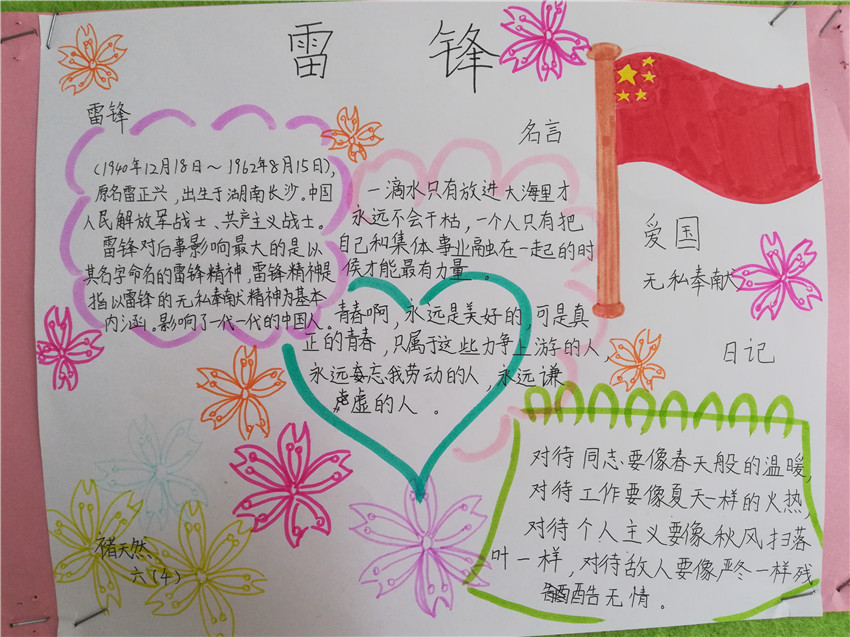 雷 锋
雷锋
(1940年12月18日～1962年8月15日),
原名雷正兴,出生于湖南长沙。中国
人民解放军战士、共产主义战士。
雷锋对后事影响最大的是以
其名字命名的雷锋精神,雷锋精神是
指以雷锋的无私奉献精神为基本
内涵。影响了一代一代的中国人。
名言
一滴水只有放进大海里才
永远不会干枯,一个人只有把
自己和集体事业融在一起的时
候才能最有力量。
青春啊,永远是美好的,可是真
正的青春,只属于这些力争上游的人,
永远忘我劳动的人,永远谦
虚的人。
爱国
无私奉献
日记
对待同志要像春天般的温暖,
对待工作要像夏天一样的火热,
对待个人主义要像秋风扫落
叶一样,对待敌人要像严冬一样残
酷无情。
褚天然
六(4)